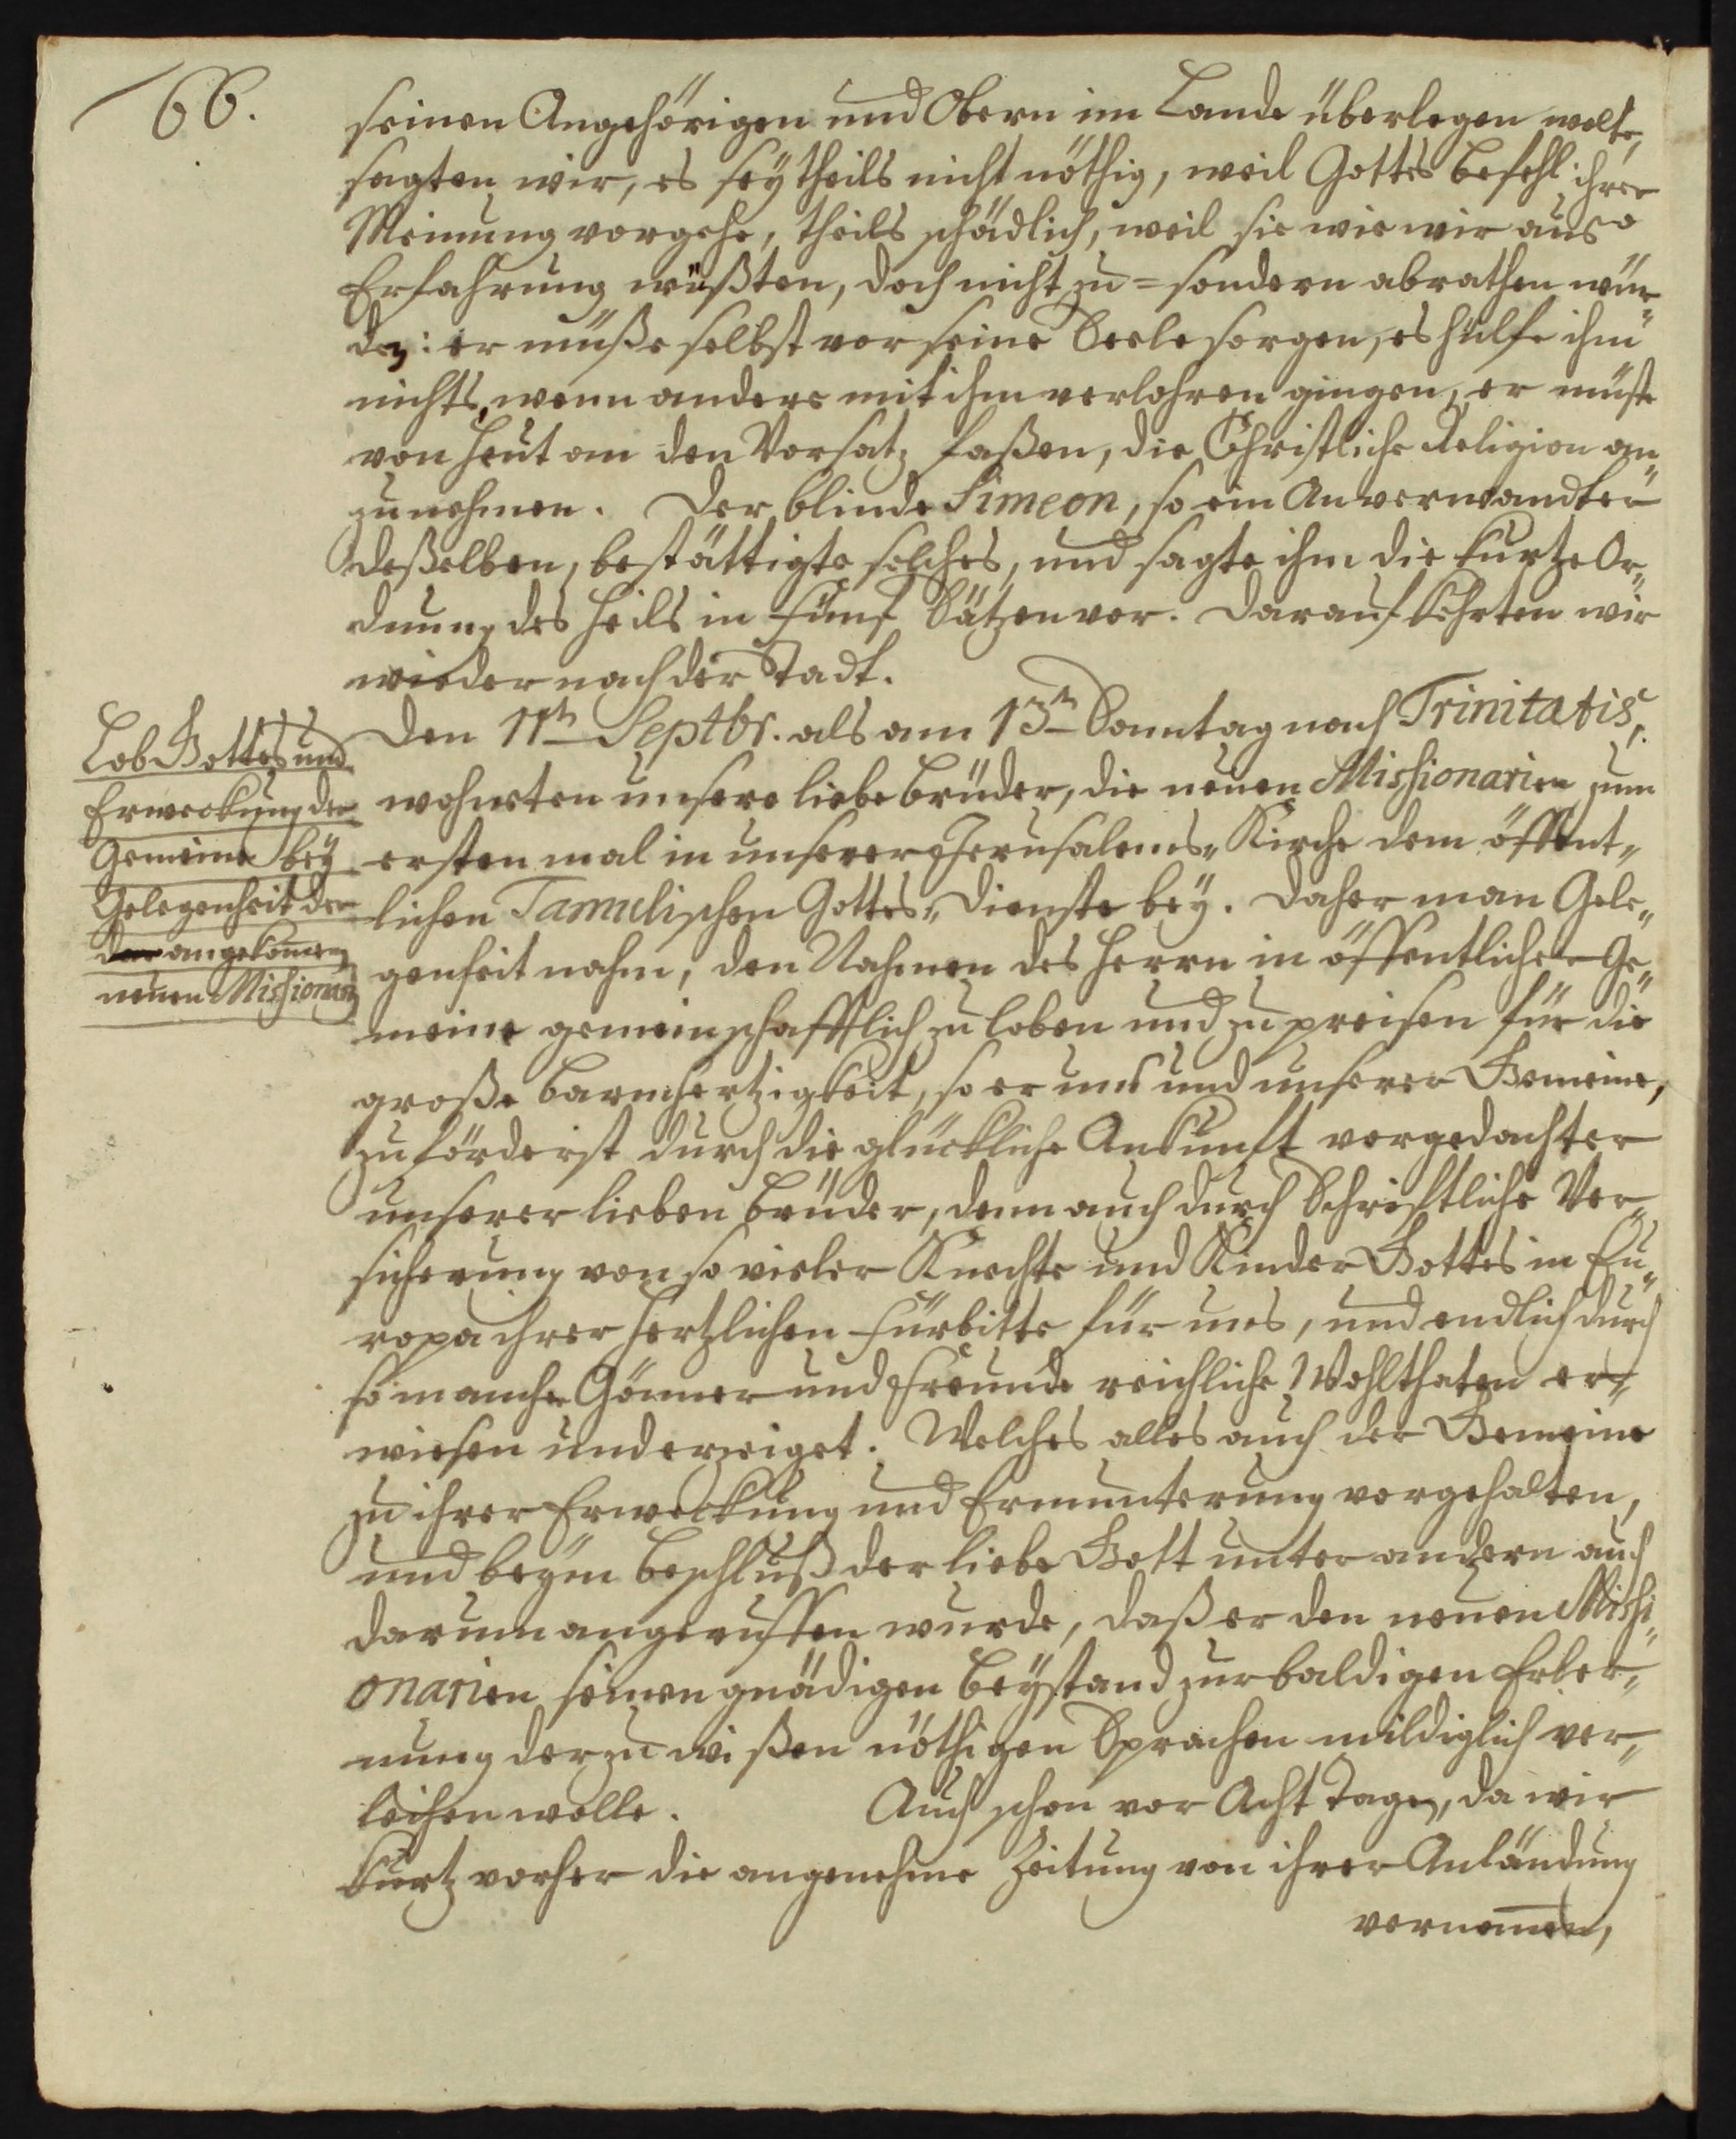 66.
seinen Angehörigen und Obern im Lande überlegen wolte,
sagten wir, es seÿ theils nicht nöthig, weil Gottes Befehl ihrer
Meinung vorgehe, theils schädlich, weil sie wie wir aus
Erfahrung wüßten, doch nicht zu = sondern abrathen wür„
den: er müße selbst vor seine Seele sorgen, es hülfe ihm
nichts, wenn andere mit ihm verlohren gingen, er müste
von heut an den Vorsatz faßen, die Christliche Religion an„
zunehmen. Der blinde Simeon, so ein Anverwandter
deßelben, bestättigte solches, und sagte ihm die kurtze Or„
dnung des Heils in fünf Sätzen vor. Darauf kehrten wir
wieder nach der Stadt.
Lob Gottes und
Erweckung der
Gemeine beÿ
Gelegenheit der
der angekomen
neuen Missionarien
Den 11tn Septbr. als am 13tn Sonntag nach Trinitatis,
wohnten unsere liebe Brüder, die neuen Missionarien zum
ersten mal in unserer Jerusalems„ Kirche dem öffent„
lichen Tamulischen Gottes„ Dienste beÿ. Daher man Gele„
genheit nahm, den Nahmen des Herrn in öffentlicher Ge„
meine gemeinschafftlich zu loben und zu preisen für die
große Barmhertzigkeit, so er uns und unserer Gemeine,
zuförderst durch die glückliche Ankunft vorgedachter
unserer lieben Brüder, denn auch durch Schriftliche Ver„
sicherung von so vieler Knechte und Kinder Gottes in Eu„
ropa ihrer hertzlichen Fürbitte für uns, und endlich durch
so mancher Gönner und Freunde reichliche Wohlthaten er„
wiesen und erzeiget. Welches alles auch der Gemeine
zu ihrer Erweckung und Ermunterung vorgehalten,
und beÿm Beschluß der liebe Gott unter andern auch
darum angeruffen wurde, daß er den neuen Missi„
onarien seinen gnädigen Beÿstand zur baldigen Erler„
nung der zu wißen nöthigen Sprachen mildiglich ver„
leihen wolle. Auch schon vor Acht Tagen, da wir
kurtz vorher die angenehme Zeitung von ihrer Anländung
vernomen,